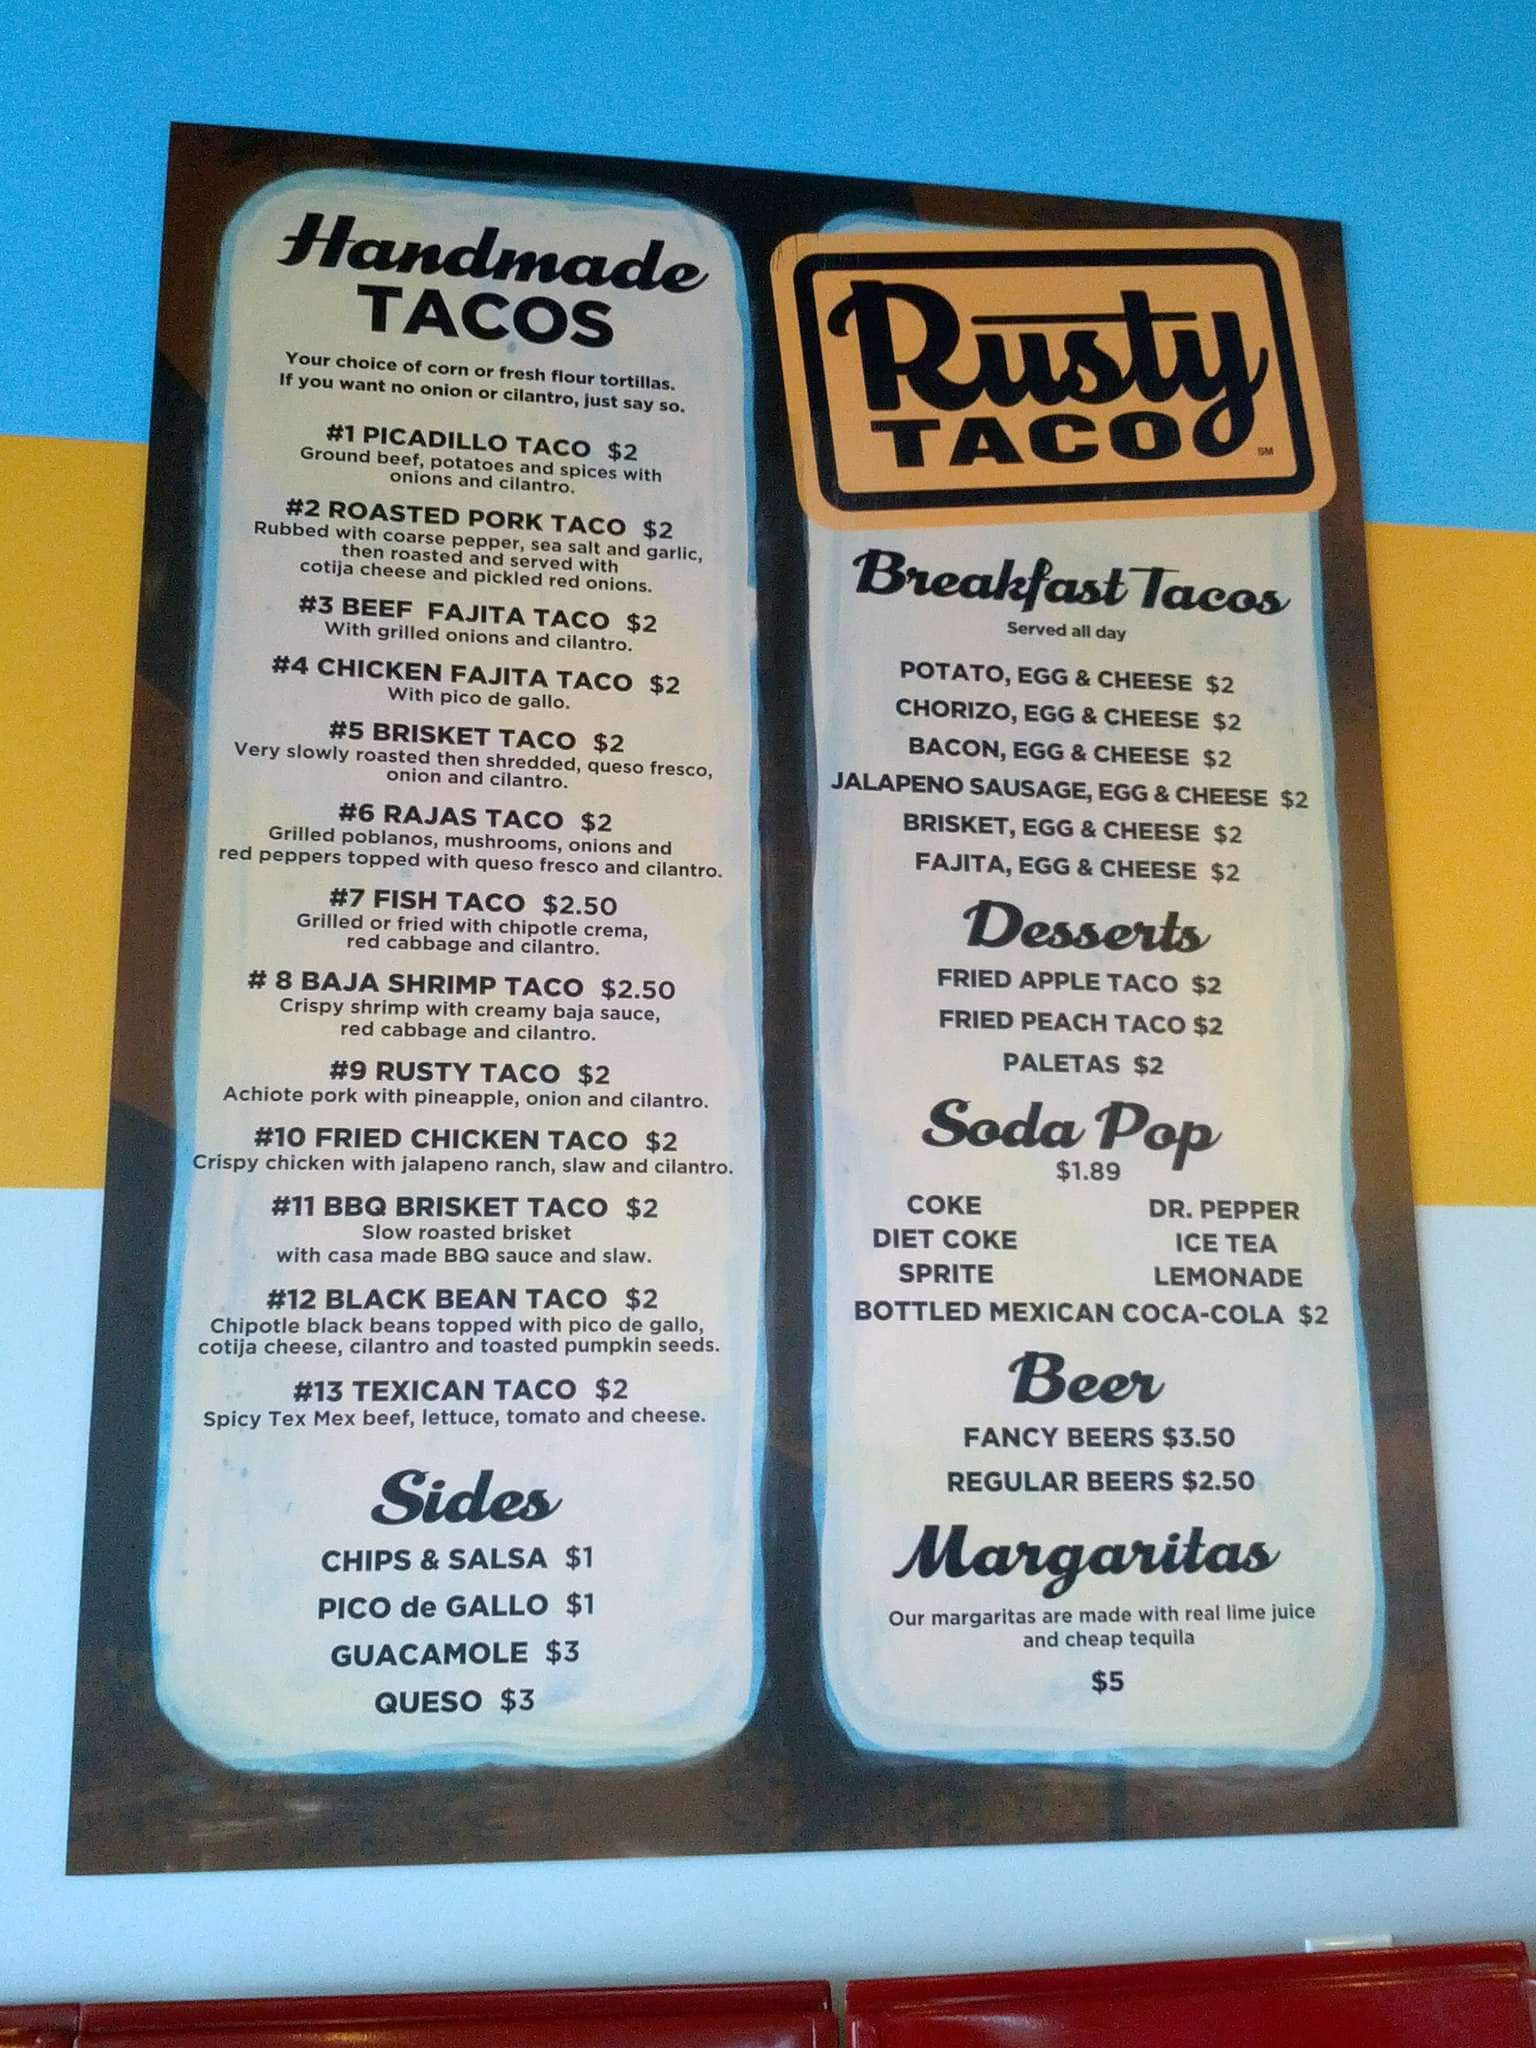 Handmade
TACOS
Your choice of corn or fresh flour tortillas.
If you want no onion or cilantro, just say so.
#1 PICADILLO TACO $2
Ground beef, potatoes and spices with
onions and cilantro.
#2 ROASTED PORK TACO $2
Rubbed with coarse pepper, sea salt and garlic,
then roasted and served with
cotija cheese and pickled red onions.
#3 BEEF FAJITA TACO $2
With grilled onions and cilantro.
#4 CHICKEN FAJITA TACO $2
With pico de gallo.
#5 BRISKET TACO $2
Very slowly roasted then shredded, queso fresco,
onion and cilantro.
#6 RAJAS TACO $2
Grilled poblanos, mushrooms, onions and
red peppers topped with queso fresco and cilantro.
#7 FISH TACO $2.50
Grilled or fried with chipotle crema,
red cabbage and cilantro.
# 8 BAJA SHRIMP TACO $2.50
Crispy shrimp with creamy baja sauce,
red cabbage and cilantro.
#9 RUSTY TACO $2
Achiote pork with pineapple, onion and cilantro.
#10 FRIED CHICKEN TACO $2
Crispy chicken with jalapeno ranch, slaw and cilantro.
#11 BBQ BRISKET TACO $2
Slow roasted brisket
with casa made BBQ sauce and slaw.
#12 BLACK BEAN TACO $2
Chipotle black beans topped with pico de gallo,
cotija cheese, cilantro and toasted pumpkin seeds.
#13 TEXICAN TACO $2
Spicy Tex Mex beef, lettuce, tomato and cheese.
Sides
CHIPS & SALSA $1
PICO de GALLO $1
GUACAMOLE $3
QUESO $3
Rusty
TACO
SM
Breakfast Tacos
Served all day
POTATO, EGG & CHEESE $2
CHORIZO, EGG & CHEESE $2
BACON, EGG & CHEESE $2
JALAPENO SAUSAGE, EGG & CHEESE $2
BRISKET, EGG & CHEESE $2
FAJITA, EGG & CHEESE $2
Desserts
FRIED APPLE TACO $2
FRIED PEACH TACO $2
PALETAS $2
Soda Pop
$1.89
COKE DR. PEPPER
DIET COKE ICE TEA
SPRITE LEMONADE
BOTTLED MEXICAN COCA-COLA $2
Beer
FANCY BEERS $3.50
REGULAR BEERS $2.50
Margaritas
Our margaritas are made with real lime juice
and cheap tequila
$5